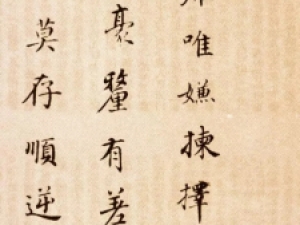 唯嫌揀擇
豪釐有差
莫存順逆